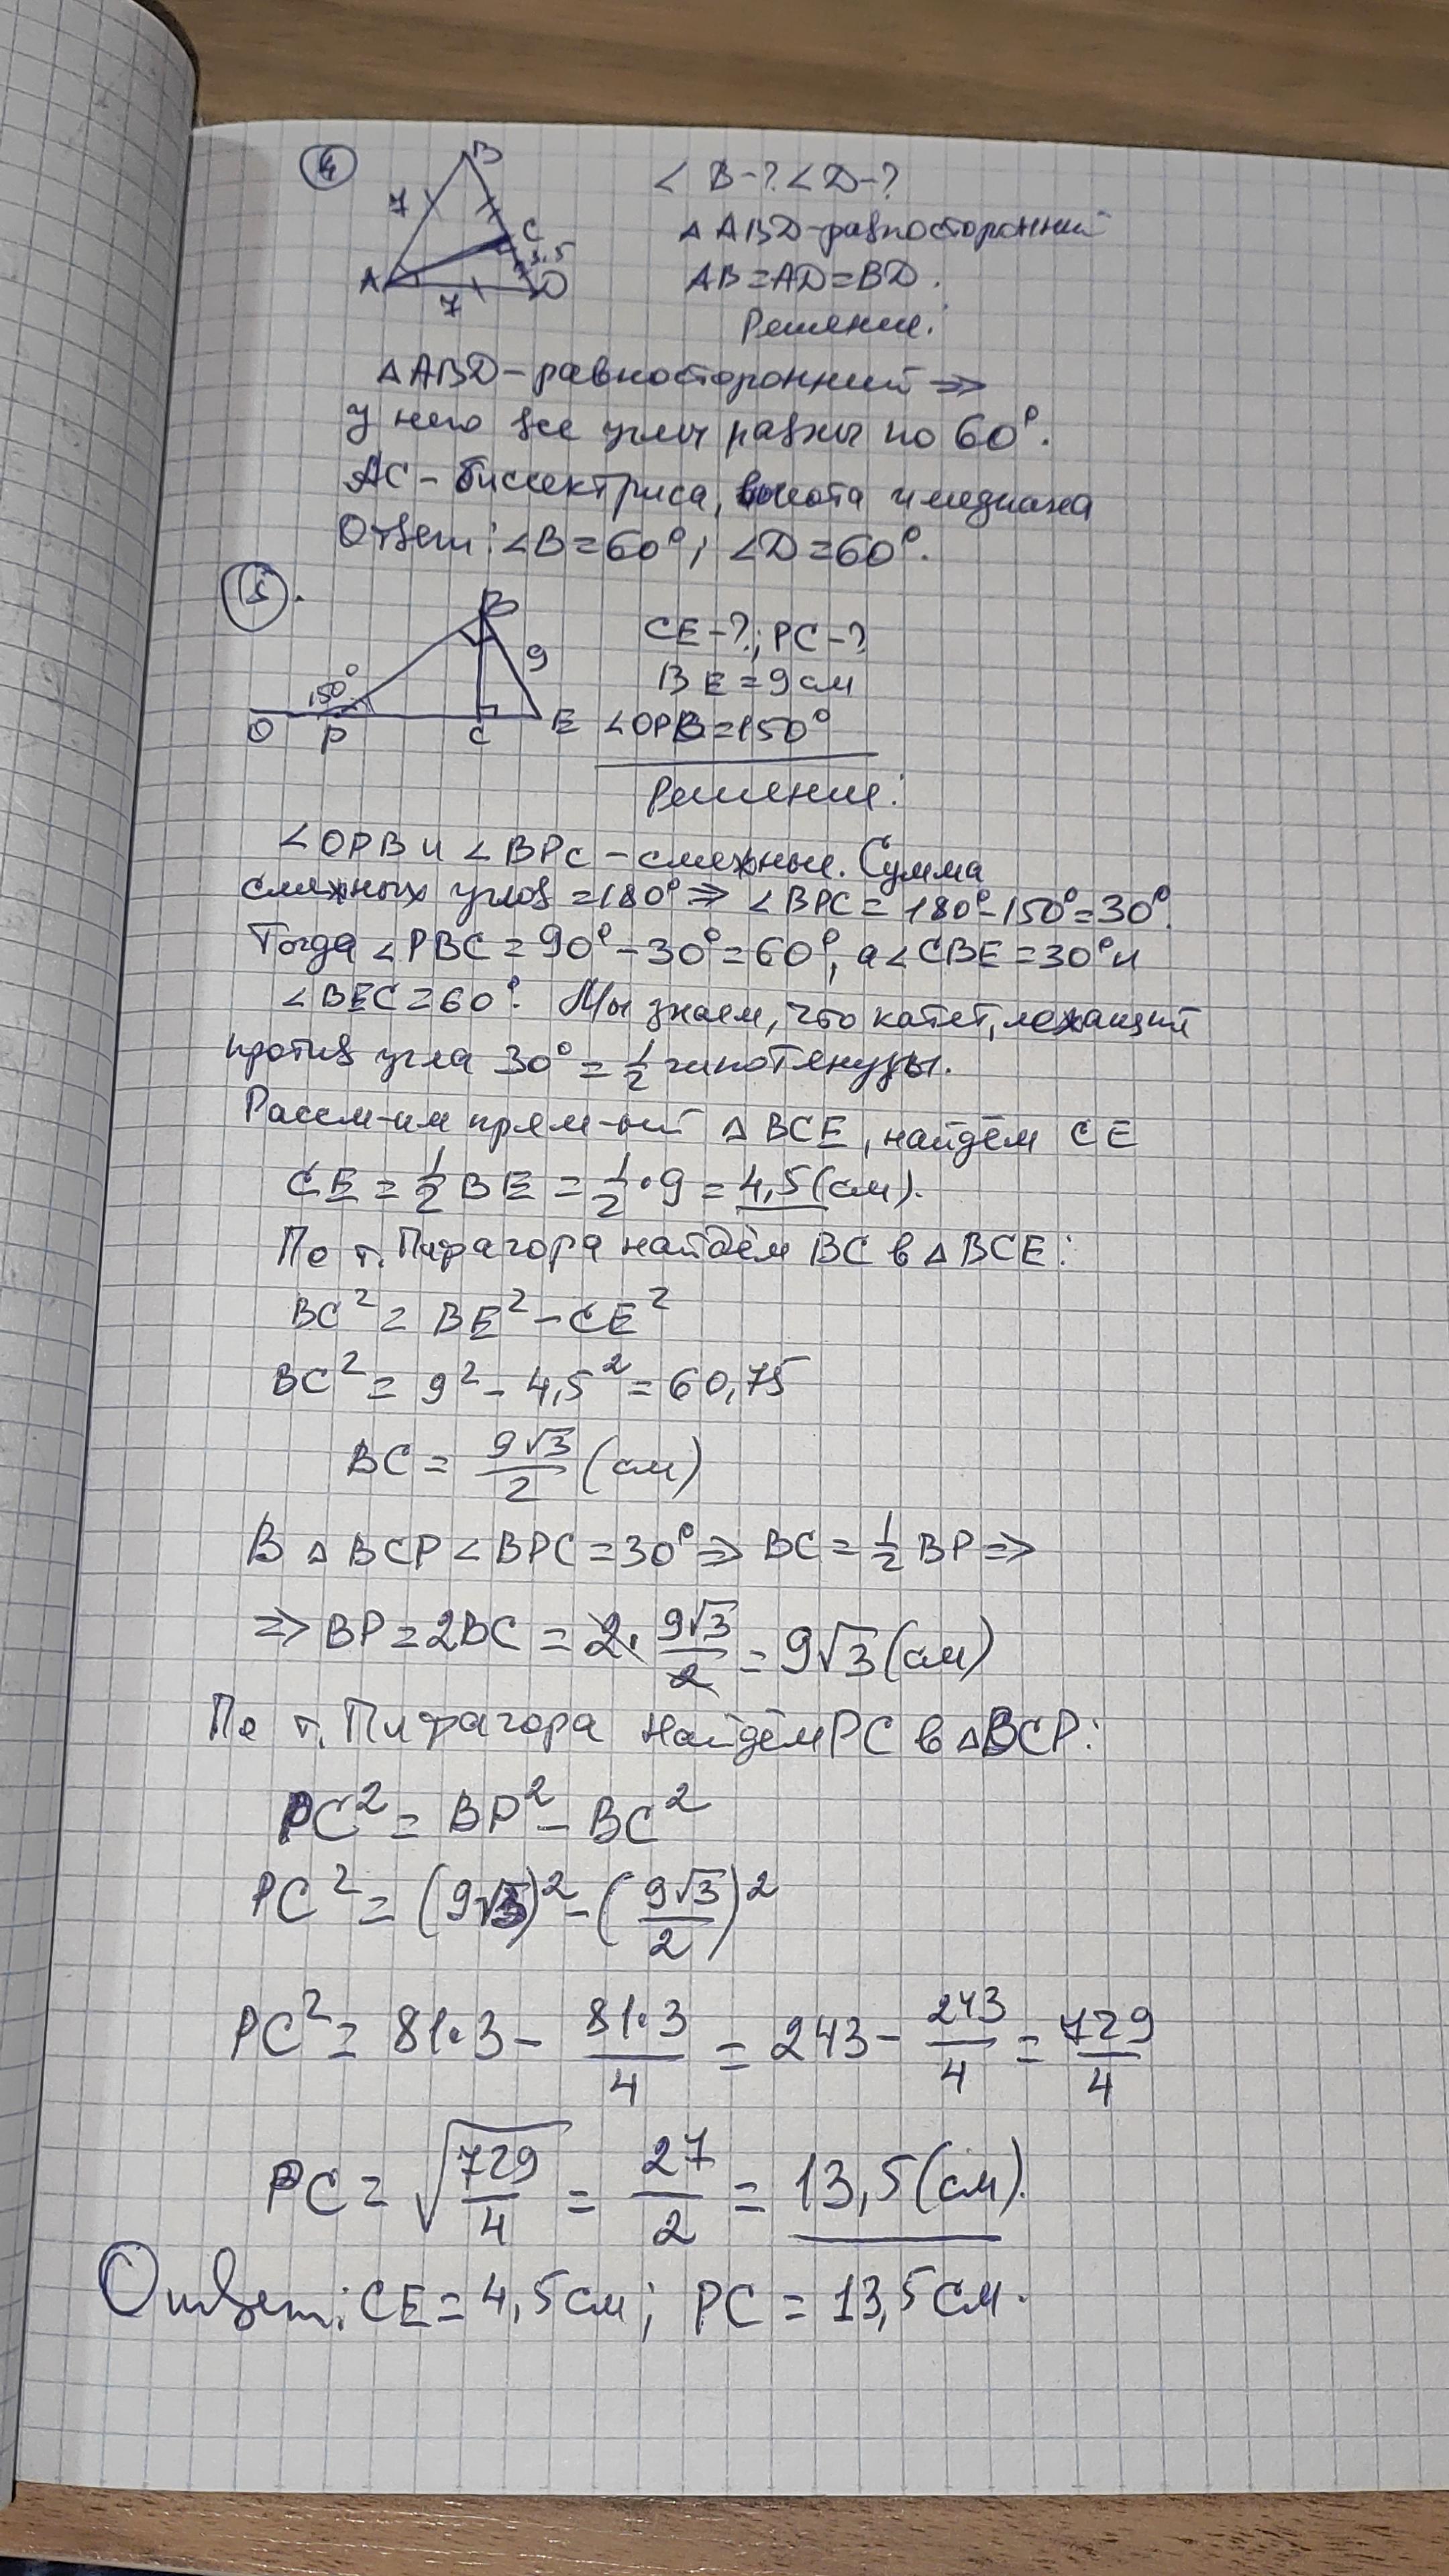 4
B
7
C
3,5
A
7
D
∠B-? ∠D-?
△ABD-равносторонний
AB=AD=BD.
Решение:
△ABD-равносторонний ⇒
у него все углы равны по 60°.
AC-биссектриса, высота и медиана
Ответ: ∠B=60°; ∠D=60°.
5.
B
9
150°
O P C E
CE-?; PC-?
BE=9см
∠OPB=150°
Решение:
∠OPB и ∠BPC-смежные. Сумма
смежных углов =180° ⇒ ∠BPC=180°-150°=30°.
Тогда ∠PBC=90°-30°=60°, а ∠CBE=30° и
∠BEC=60°. Мы знаем, что катет, лежащий
против угла 30°=1/2 гипотенузы.
Рассм-им прям-ый △BCE, найдём CE
CE=1/2 BE=1/2·9=4,5(см).
По т. Пифагора найдём BC в △BCE:
BC²=BE²-CE²
BC²=9²-4,5²=60,75
BC=9√3/2 (см)
В △BCP ∠BPC=30° ⇒ BC=1/2 BP ⇒
⇒ BP=2BC=2·9√3/2=9√3(см)
По т. Пифагора найдём PC в △BCP:
PC²=BP²-BC²
PC²=(9√3)²-(9√3/2)²
PC²=81·3-81·3/4=243-243/4=729/4
PC=√729/4=27/2=13,5(см).
Ответ: CE=4,5см; PC=13,5см.